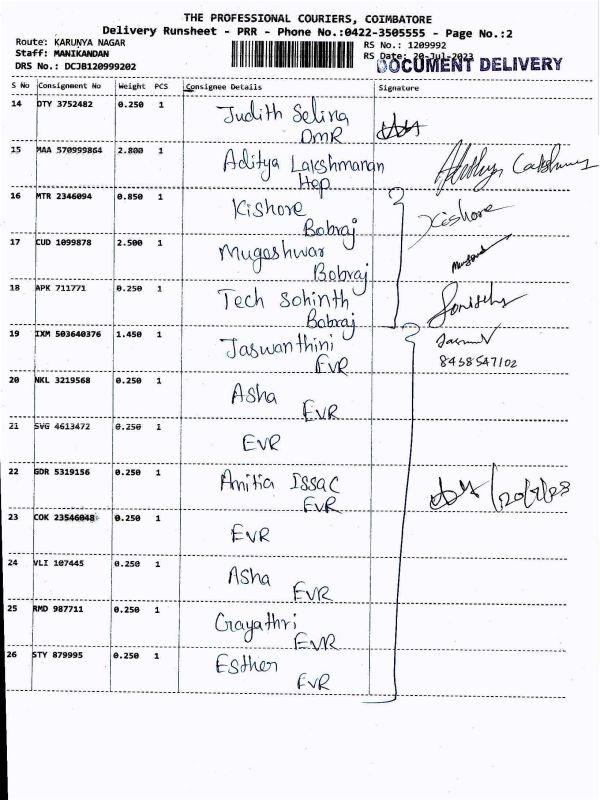 THE PROFESSIONAL COURIERS, COIMBATORE
Delivery Runsheet - PRR - Phone No.:0422-3505555 - Page No.:2
Route: KARUNYA NAGAR
RS No.: 1209992
Staff: MANIKANDAN
RS Date: 20-Jul-2023
DRS No.: DCJB120999202
DOCUMENT DELIVERY
S No Consignment No Weight PCS Consignee Details Signature
14 DTY 3752482 0.250 1 Judith Selina
DMR
15 MAA 570999864 2.800 1 Aditya Lakshmanan
Hep
16 MTR 2346094 0.850 1 Kishore Kishore
Bobraj
17 CUD 1099878 2.500 1 Mugeshwar
Bobraj
18 APK 711771 0.250 1 Tech Sohinth
Bobraj
19 IXM 503640376 1.450 1 Jaswanthini
EVR 8438547102
20 NKL 3219568 0.250 1 Asha
EVR
21 SVG 4613472 0.250 1
EVR
22 GDR 5319156 0.250 1 Anitia Issac
EVR 20/7/23
23 COK 23546048 0.250 1
EVR
24 VLI 107445 0.250 1 Asha
EVR
25 RMD 987711 0.250 1 Gayathri
EVR
26 STY 879995 0.250 1 Esther
EVR